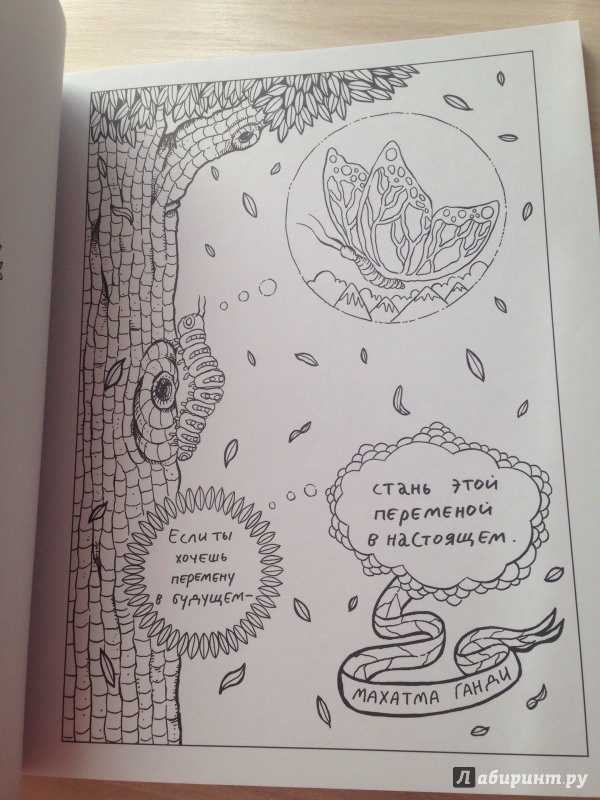 Если ты
хочешь
перемену
в будущем—
стань этой
переменой
в настоящем.
МАХАТМА ГАНДИ
Лабиринт.ру